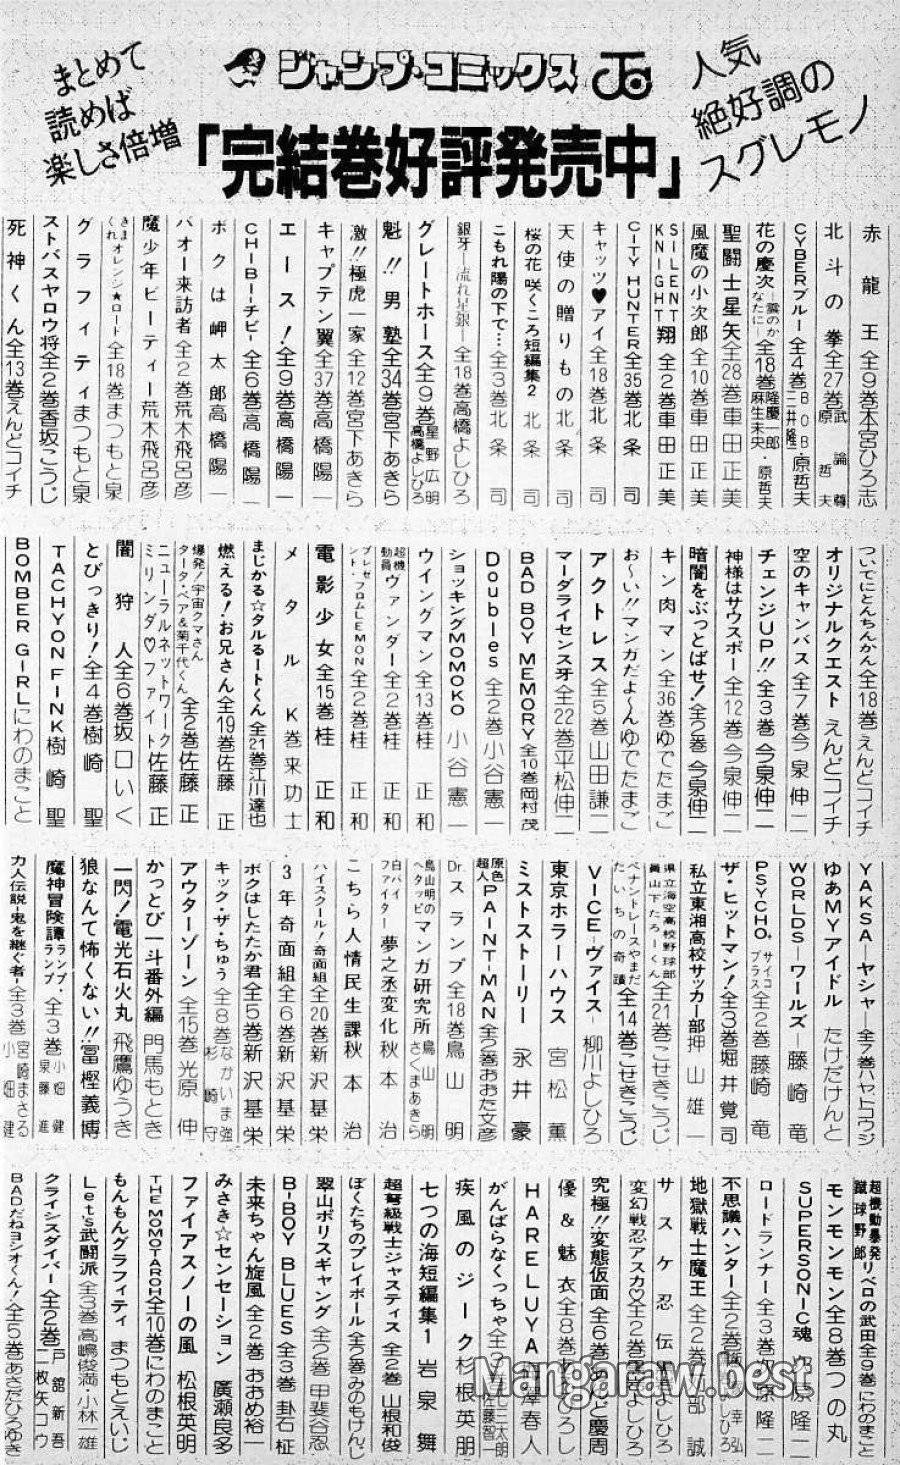 まとめて
読めば
楽しさ倍増
ジャンプ・コミックス
人気
絶好調の
スグレモノ
「完結巻好評発売中」
赤龍王 全9巻 本宮ひろ志
北斗の拳 全27巻 武論尊 原哲夫
CYBERブルー 全4巻 BOB 三井隆一 原哲夫
花の慶次 ―雲のかなたに― 全18巻 隆慶一郎 麻生未央・原哲夫
聖闘士星矢 全28巻 車田正美
風魔の小次郎 全10巻 車田正美
SILENT KNIGHT 翔 全2巻 車田正美
CITY HUNTER 全35巻 北条司
キャッツ♥アイ 全18巻 北条司
天使の贈りもの 北条司
桜の花 咲くころ 短編集2 北条司
こもれ陽の下で… 全3巻 北条司
銀牙―流れ星 銀― 全18巻 高橋よしひろ
グレートホース 全9巻 星野広明 高橋よしひろ
魁!!男塾 全34巻 宮下あきら
激!!極虎一家 全12巻 宮下あきら
キャプテン翼 全37巻 高橋陽一
エース! 全9巻 高橋陽一
CHIBI―チビ― 全6巻 高橋陽一
ボクは岬太郎 高橋陽一
バオー来訪者 全2巻 荒木飛呂彦
魔少年ビーティー 荒木飛呂彦
きまぐれオレンジ★ロード 全18巻 まつもと泉
グラフィティ まつもと泉
ストバスヤロウ将 全2巻 香坂こうじ
死神くん 全13巻 えんどコイチ
ついでにとんちんかん 全18巻 えんどコイチ
オリジナルクエスト えんどコイチ
空のキャンバス 全7巻 今泉伸二
チェンジUP!! 全3巻 今泉伸二
神様はサウスポー 全12巻 今泉伸二
暗闇をぶっとばせ! 全2巻 今泉伸二
キン肉マン 全36巻 ゆでたまご
お〜い!!マンガだよ〜ん ゆでたまご
アクトレス 全5巻 山田謙二
マーダライセンス牙 全22巻 平松伸二
BAD BOY MEMORY 全10巻 岡村茂
Doubles 全2巻 小谷憲一
ショッキングMOMOKO 小谷憲一
ウイングマン 全13巻 桂正和
超機動員ヴァンダー 全2巻 桂正和
プレゼント・フロムLEMON 全2巻 桂正和
電影少女 全15巻 桂正和
メタルK 巻来功士
まじかる☆タルるートくん 全21巻 江川達也
燃える!お兄さん 全19巻 佐藤正
爆発!宇宙クマさん タータ・ベア&菊千代くん 全2巻 佐藤正
ニューラルネットワーク ミリンダ♡ファイト 佐藤正
闇狩人 全6巻 坂口いく
とびっきり! 全4巻 樹崎聖
TACHYON FINK 樹崎聖
BOMBER GIRL にわのまこと
YAKSA―ヤシャ― 全7巻 ハヤトコウジ
ゆぁMYアイドル たけだけんと
WORLDS―ワールズ― 藤崎竜
PSYCHO+ サイコプラス 全2巻 藤崎竜
ザ・ヒットマン! 全3巻 堀井覚司
私立東湘高校サッカー部 押山雄一
県立海空高校野球部員山下たろーくん 全21巻 こせきこうじ
ペナントレースやまだたいちの奇蹟 全14巻 こせきこうじ
VICE―ヴァイス― 柳川よしひろ
東京ホラーハウス 宮松薫
ミストストーリー 永井豪
原色超人PAINT-MAN 全5巻 おおた文彦
Dr.スランプ 全18巻 鳥山明
鳥山明のヘタッピマンガ研究所 鳥山明 さくまあきら
白バイファイター 夢之丞変化 秋本治
こちら人情民生課 秋本治
ハイスクール!奇面組 全20巻 新沢基栄
3年奇面組 全6巻 新沢基栄
ボクはしたたか君 全5巻 新沢基栄
キック・ザ・ちゅう 全8巻 なかいま強 杉崎守
アウターゾーン 全15巻 光原伸
かっとび一斗番外編 門馬もとき
一閃!電光石火丸 飛鷹ゆうき
狼なんて怖くない!! 冨樫義博
魔神冒険譚ランプ・ランプ 全3巻 小畑健 泉藤進
力人伝説―鬼を継ぐ者― 全3巻 宮崎まさる 小畑健
超機動暴発蹴球野郎 リベロの武田 全9巻 にわのまこと
モンモンモン 全8巻 つの丸
SUPERSONIC魂 次原隆二
ロードランナー 全3巻 次原隆二
不思議ハンター 全2巻
地獄戦士魔王 全2巻 部誠
サスケ忍伝 よしひろ
変幻戦忍アスカ♡ 全2巻 よしひろ
究極!!変態仮面 全6巻 あんど慶周
優&魅衣 全8巻 あろひろし
HARELUYA 梅澤春人
がんばらなくっちゃ 全3巻 こしこ三太朗 佐藤智一
疾風のジーク 杉根英朋
七つの海 短編集1 岩泉舞
超弩級戦士ジャスティス 全2巻 山根和俊
ぼくたちのプレイボール 全2巻 みのもけんじ
翠山ポリスギャング 全2巻 甲斐谷忍
B-BOY BLUES 全3巻 卦石柾
未来ちゃん旋風 全2巻 おおめ裕一
みさき☆センセーション 廣瀬良多
ファイアスノーの風 松根英明
THE MOMOTAROH 全10巻 にわのまこと
もんもんグラフィティ まつもとえいじ
Let's武闘派 全3巻 高嶋俊満・小林一雄
クライシスダイバー 全2巻 戸舘新吾 二枚矢コウ
BADだねヨシオくん! 全5巻 あさだひろゆき
Mangaraw.best